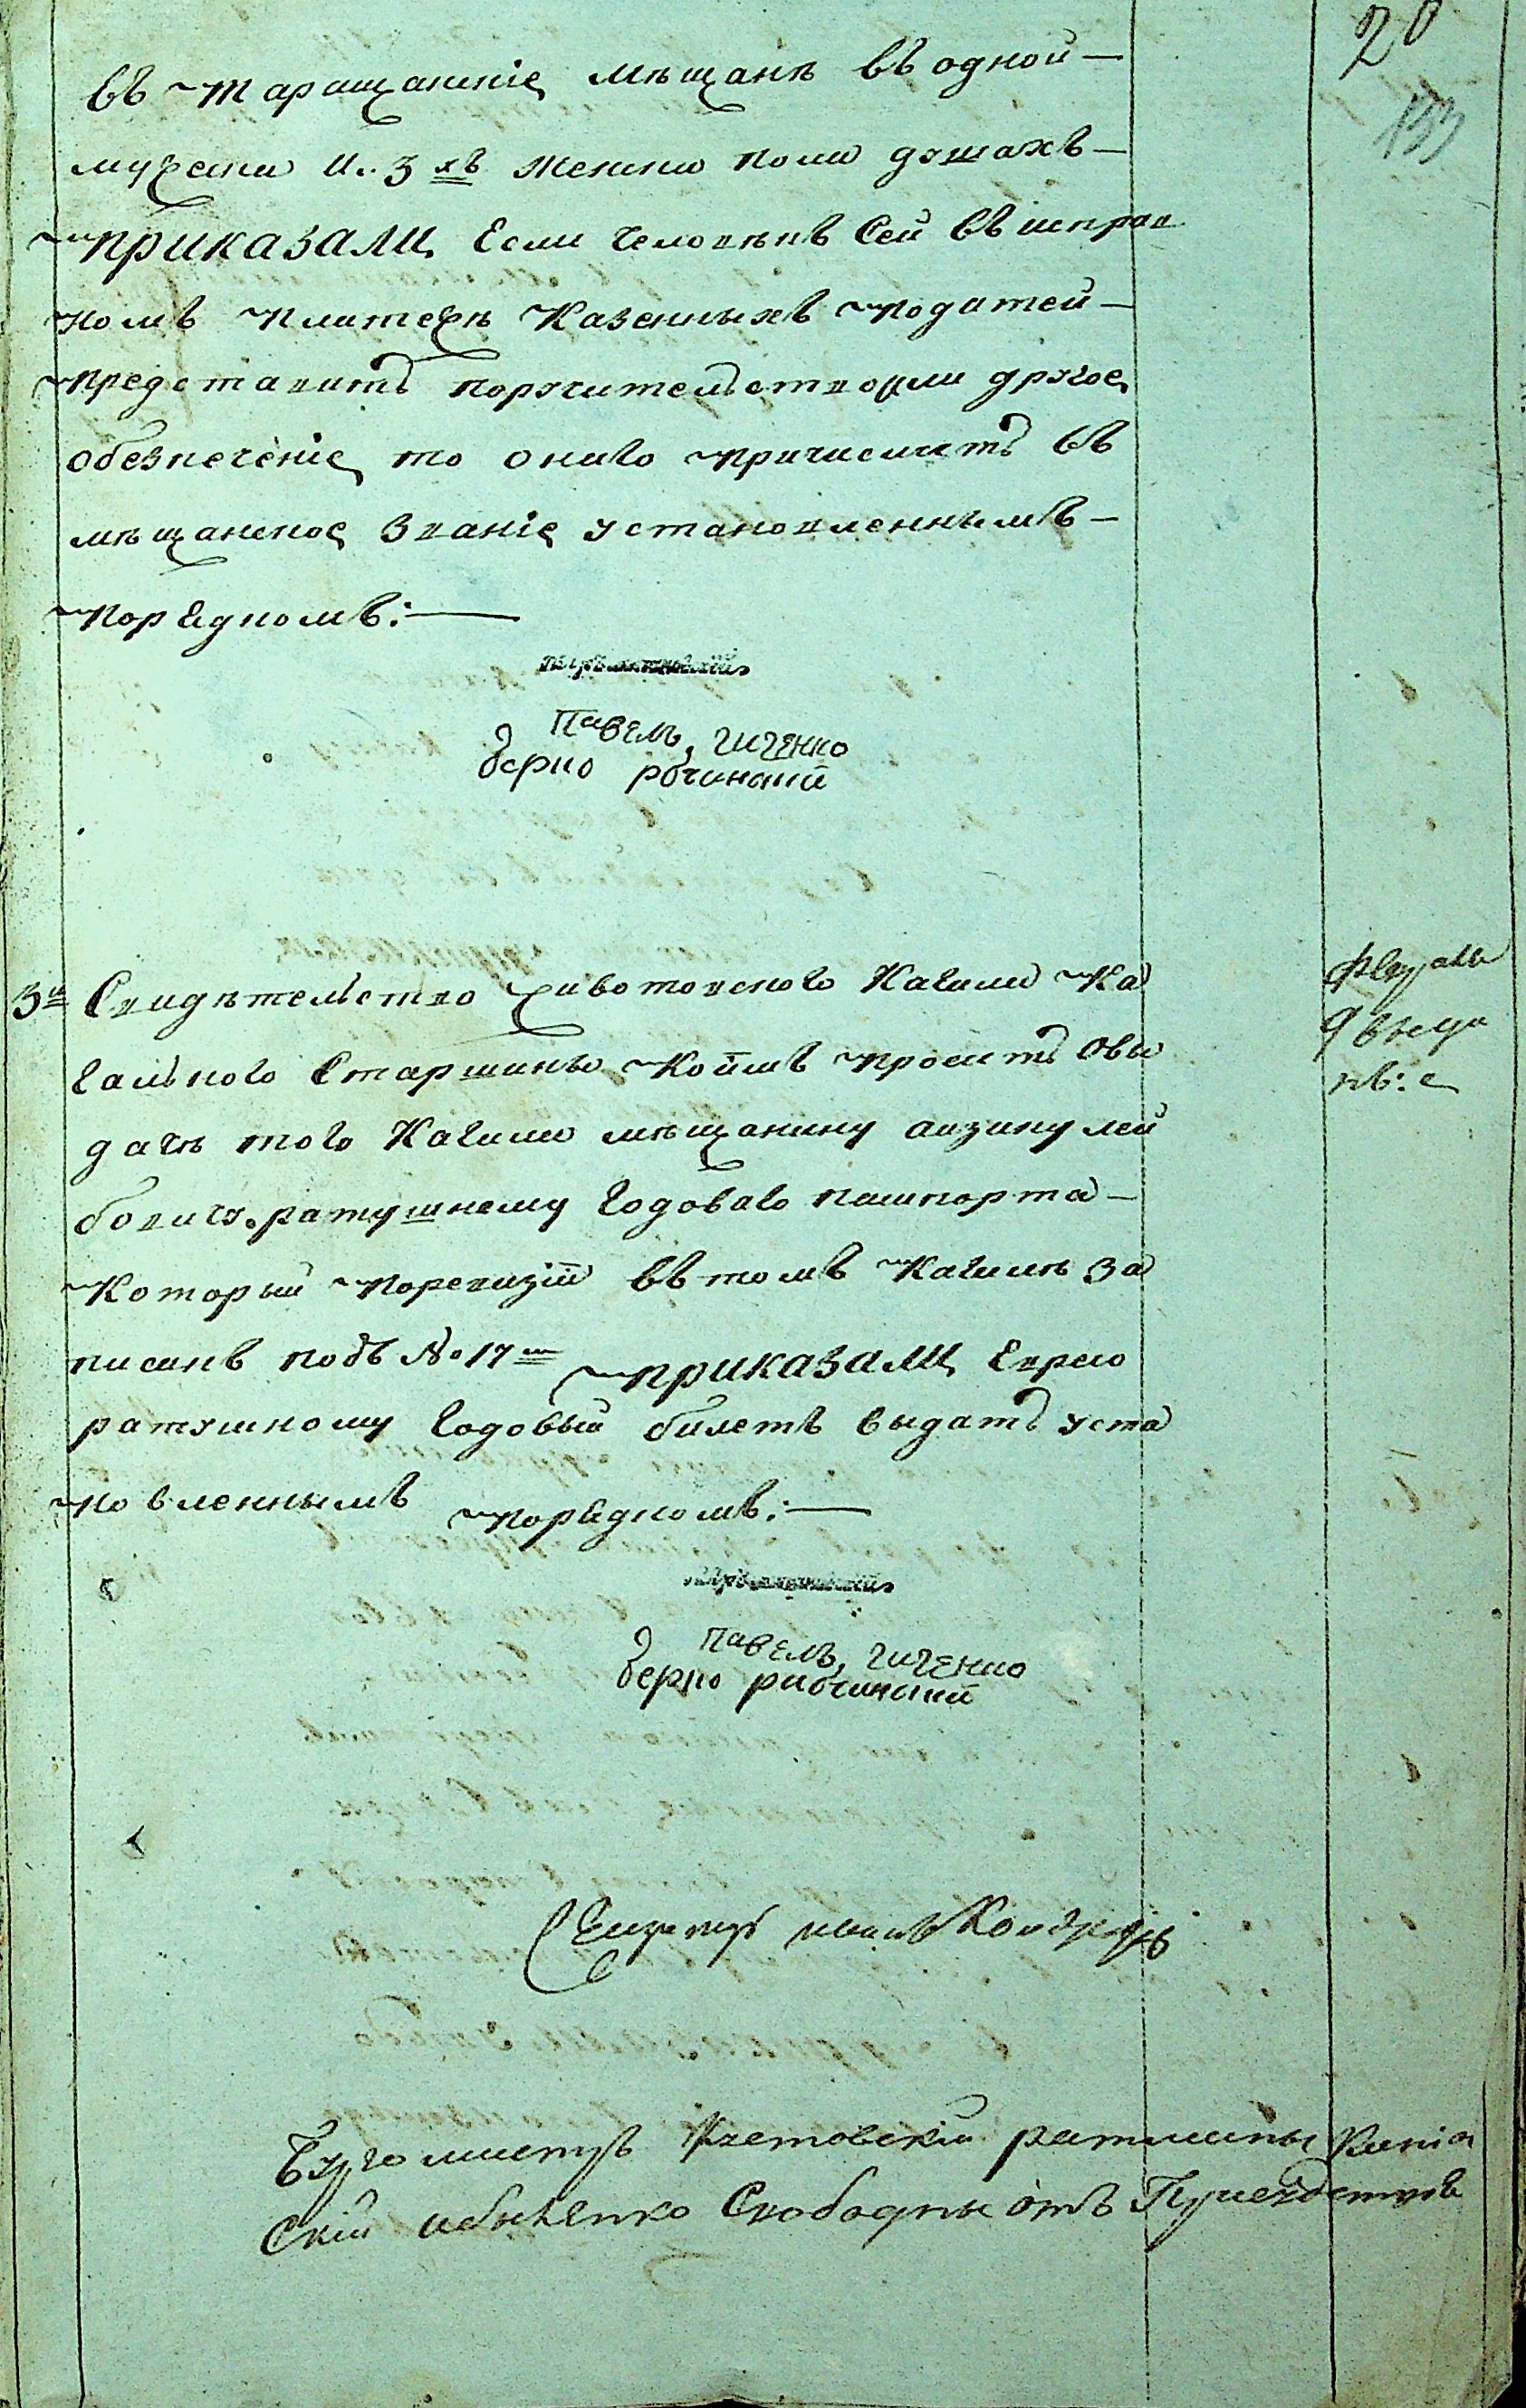 20
133
въ Таращанскіе мѣщанѣ въ одной
мужска и. 3 хъ женска пола душахъ
приказали, Если человѣкъ Сей въ исправ
номъ платежѣ Казенныхъ податей
представитъ поручительство или другое
обезпеченіе то онаго причислить въ
мѣщанское званіе установленнымъ
порядкомъ:
Павелъ, Чиченко
берко
3е Свидѣтельство животовскаго Кагала Ка
гальнаго Старшины коимъ проситъ овы
дачѣ того Кагала мѣщанину аизику лей
бовичу ратушнему годоваго пашпорта
Который поревизіи въ томъ Кагалѣ за
писанъ подъ № 17м приказали, Еврею
ратушному годовый билетъ выдать уста
новленнымъ порядкомъ:
Павелъ, Чиченко
берко
Секретарь иванъ
Бургомистръ ратманы
скій Свободны отъ